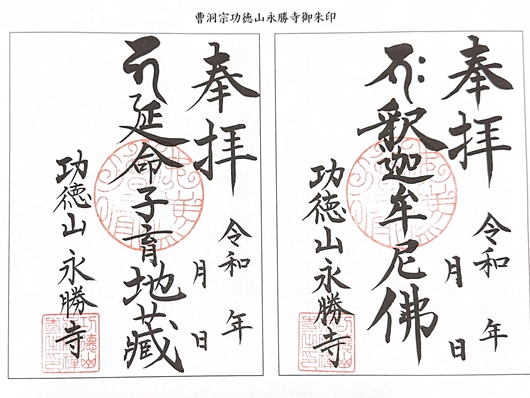 曹洞宗功徳山永勝寺御朱印
奉拝
令和 年
月 日
釈迦牟尼佛
功徳山 永勝寺
奉拝
令和 年
月 日
延命子育地蔵
功徳山 永勝寺